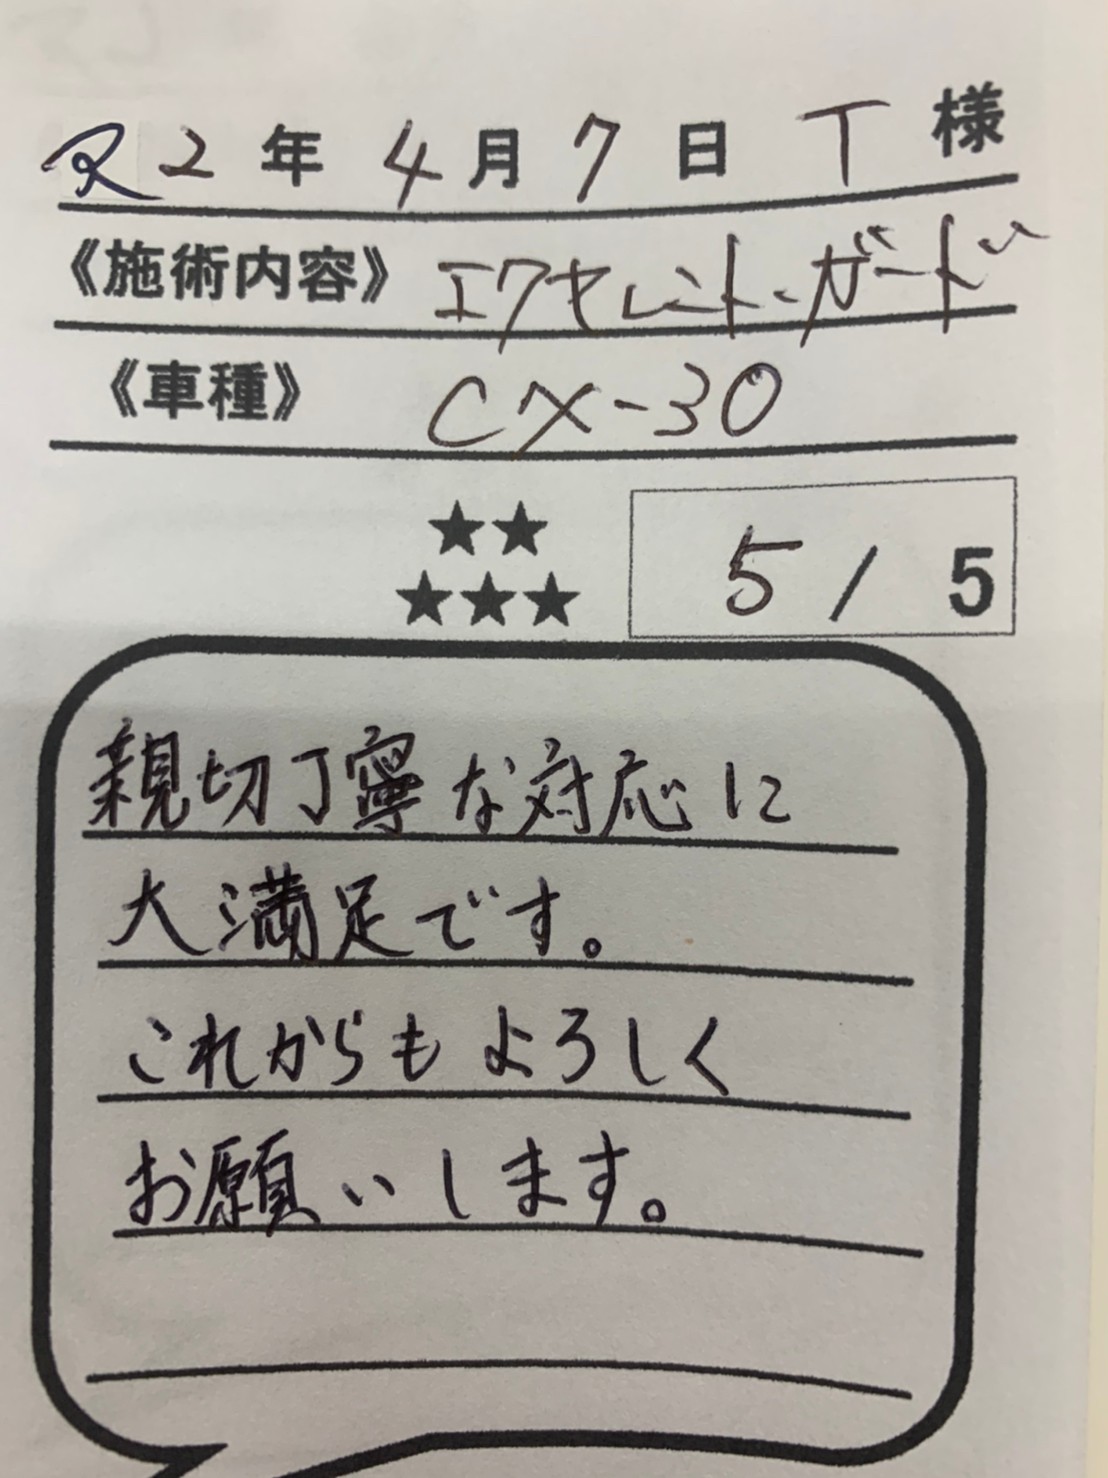 R2年4月7日 T様
《施術内容》 エクセレント・ガード
《車種》 CX-30
★★
★★★ 5/5
親切丁寧な対応に
大満足です。
これからもよろしく
お願いします。